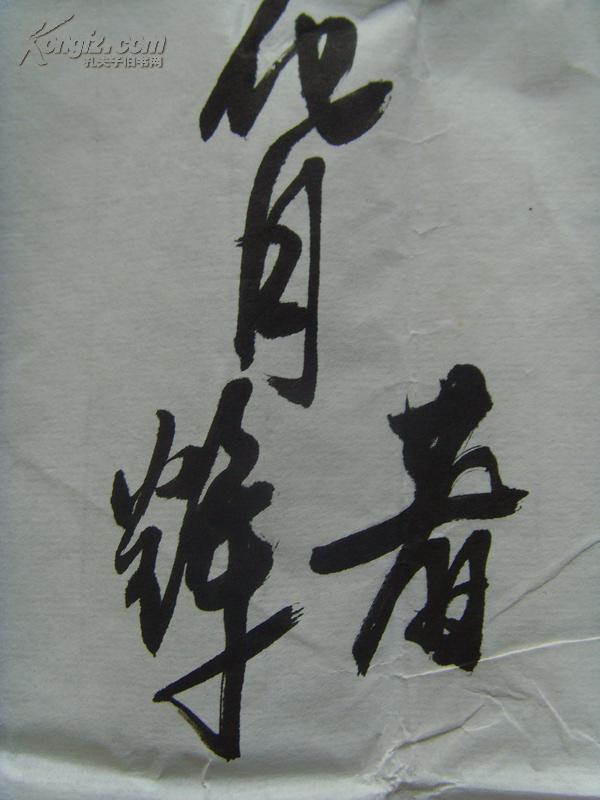 Kongfz.com
孔夫子旧书网
春
月辉